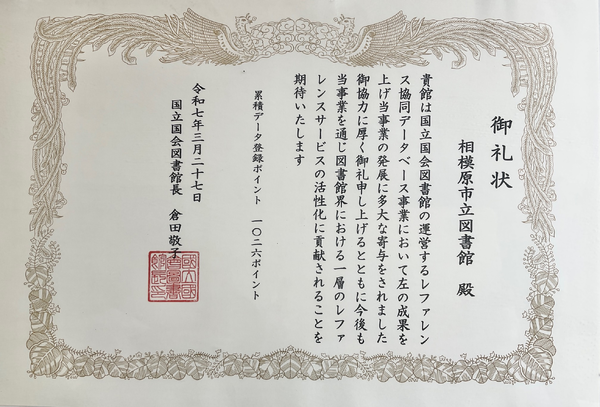 御礼状
相模原市立図書館 殿
貴館は国立国会図書館の運営するレファレン
ス協同データベース事業において左の成果を
上げ当事業の発展に多大な寄与をされました
御協力に厚く御礼申し上げるとともに今後も
当事業を通じ図書館界における一層のレファ
レンスサービスの活性化に貢献されることを
期待いたします
累積データ登録ポイント 一〇二六ポイント
令和七年三月二十七日
国立国会図書館長 倉田敬子